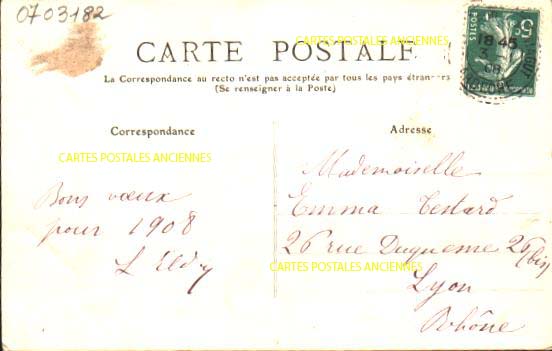 0703182
CARTE POSTALE
CARTES POSTALES ANCIENNES
La Correspondance au recto n'est pas acceptée par tous les pays étrangers
(Se renseigner à la Poste)
POSTES
5c
18 45
3
08
Correspondance
CARTES POSTALES ANCIENNES
Bons vœux
pour 1908
Adresse
Mademoiselle
Emma Testard
26 rue Duquesne 26
(bis)
CARTES POSTALES ANCIENNES
Lyon
Rhône